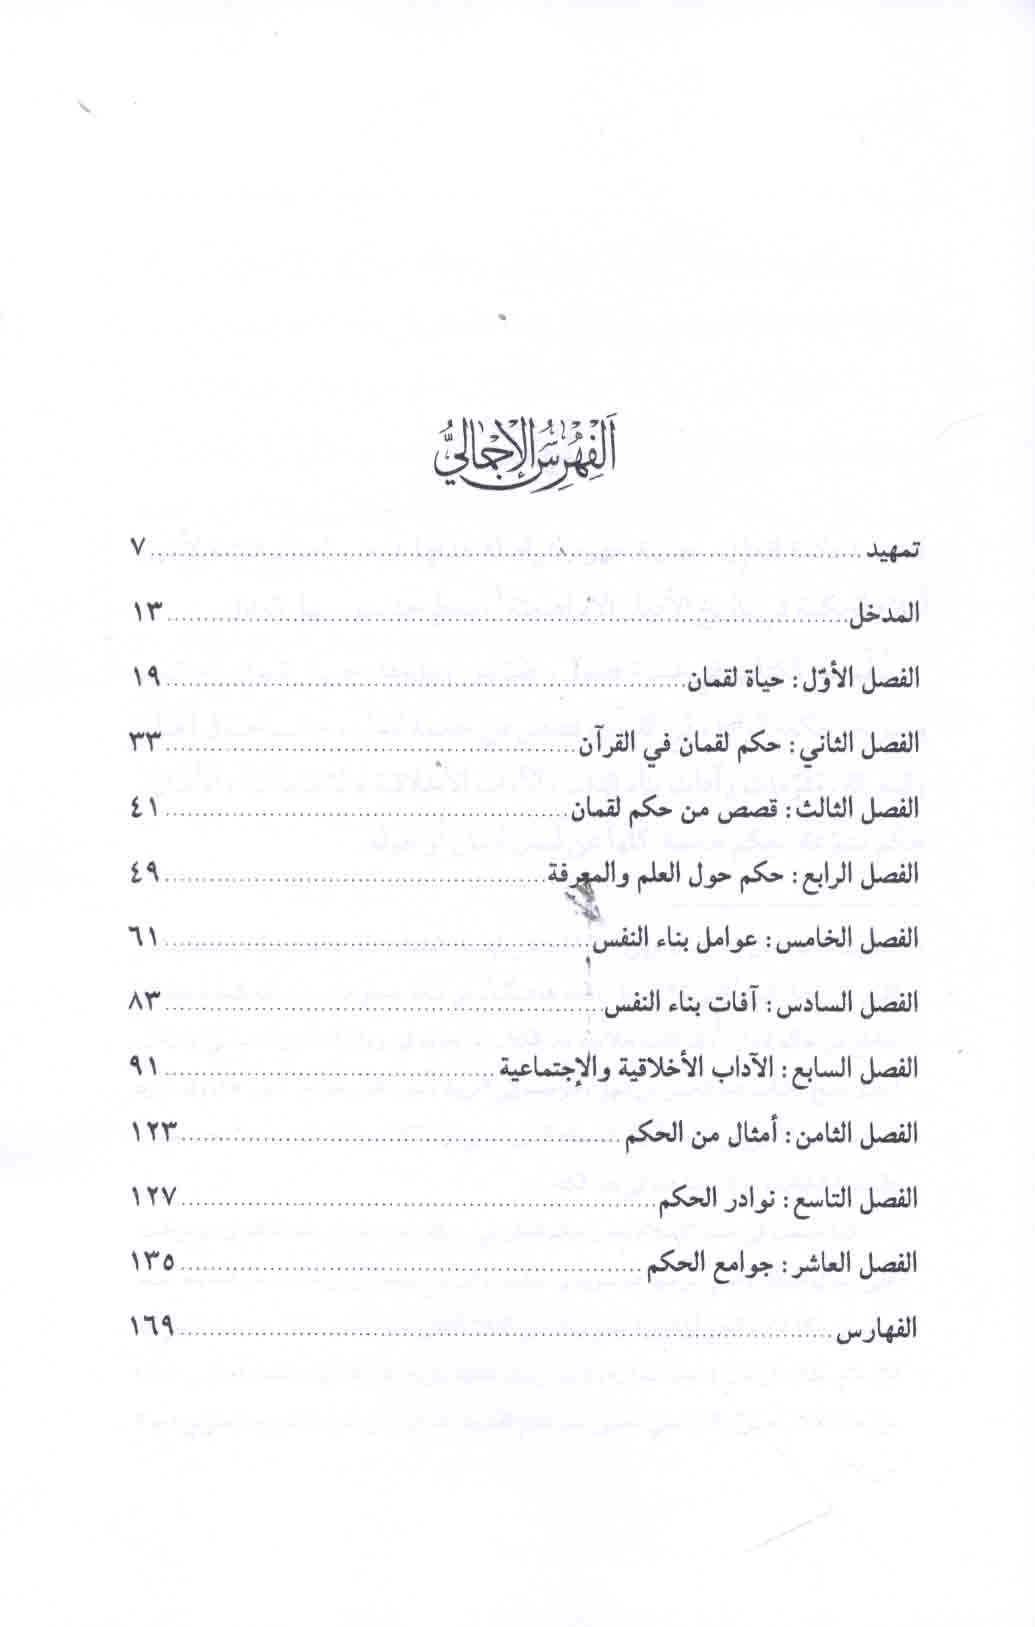 اَلْفِهْرِسُ الْإِجْمَالِيُّ
تمهيد ........ ٧
المدخل ........ ١٣
الفصل الأوّل: حياة لقمان ........ ١٩
الفصل الثاني: حكم لقمان في القرآن ........ ٣٣
الفصل الثالث: قصص من حكم لقمان ........ ٤١
الفصل الرابع: حكم حول العلم والمعرفة ........ ٤٩
الفصل الخامس: عوامل بناء النفس ........ ٦١
الفصل السادس: آفات بناء النفس ........ ٨٣
الفصل السابع: الآداب الأخلاقية والإجتماعية ........ ٩١
الفصل الثامن: أمثال من الحكم ........ ١٢٣
الفصل التاسع: نوادر الحكم ........ ١٢٧
الفصل العاشر: جوامع الحكم ........ ١٣٥
الفهارس ........ ١٦٩